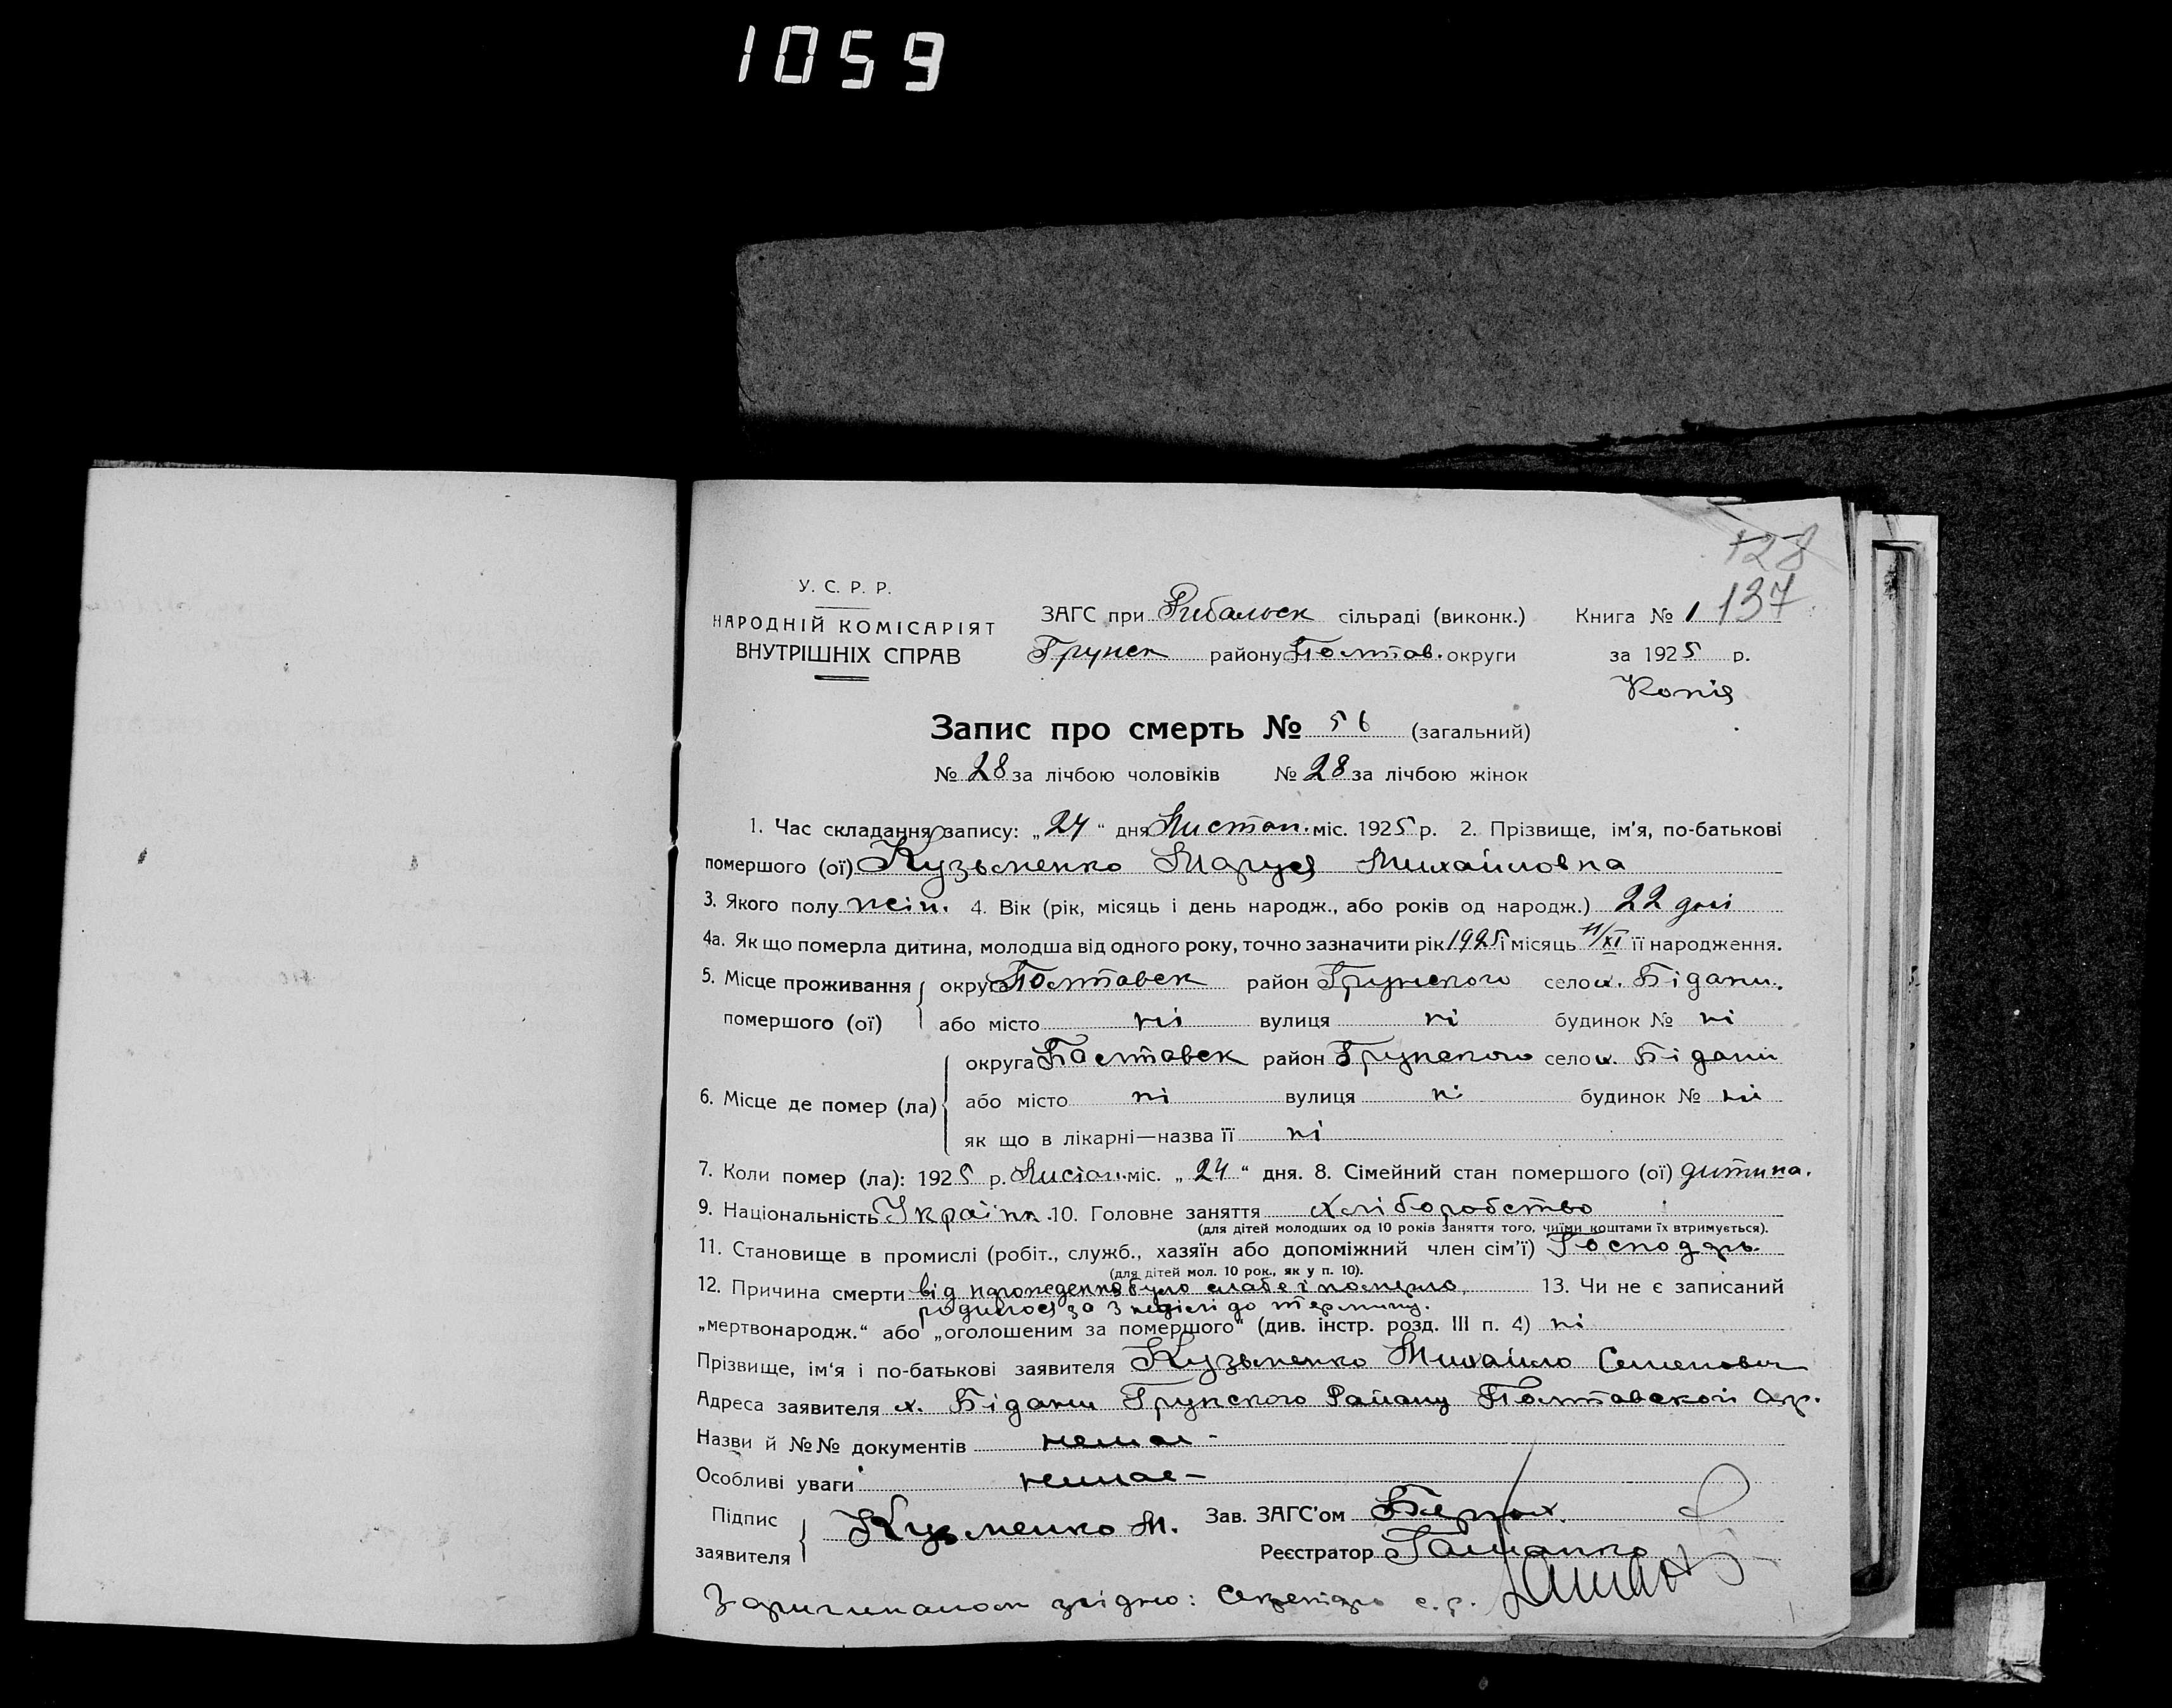 1059
128
137
У. С. Р. Р.
НАРОДНІЙ КОМІСАРІЯТ
ВНУТРІШНІХ СПРАВ
ЗАГС при Рибальск сільраді (виконк.)
Грунск району Полтав. округи
Книга № 1
за 1925 р.
Копія
Запис про смерть № 56 (загальний)
№ 28 за лічбою чоловіків № 28 за лічбою жінок
1. Час складання запису: „24“ дня Листоп. міс. 1925 р. 2. Прізвище, ім'я, по-батькові
помершого (ої) Кузьменко Маруся Михайловна
3. Якого полу жін. 4. Вік (рік, місяць і день народж., або років од народж.) 22 дні
4а. Як що померла дитина, молодша від одного року, точно зазначити рік 1925 і місяць /XI її народження.
5. Місце проживання округа Полтавск район Грунского село х. Бідани.
помершого (ої) або місто ні вулиця ні будинок № ні
округа Полтавск район Грунского село х. Бідани
6. Місце де помер (ла) або місто ні вулиця ні будинок № ні
як що в лікарні—назва її ні
7. Коли помер (ла): 1925 р. Листоп. міс. „24“ дня. 8. Сімейний стан помершого (ої) дитина.
9. Національність Україн. 10. Головне заняття хліборобство
(для дітей молодших од 10 років заняття того, чиїми коштами їх втримується).
11. Становище в промислі (робіт., служб., хазяїн або допоміжний член сім'ї) Господарь
(для дітей мол. 10 рок., як у п. 10).
12. Причина смерти від було слабе і померло, 13. Чи не є записаний
родилося за 3 неділі до терміну.
„мертвонародж.“ або „оголошеним за помершого“ (див. інстр. розд. III п. 4) ні
Прізвище, ім'я і по-батькові заявителя Кузьменко Михайло Семенович
Адреса заявителя х. Бідани Грунского Району Полтавскої Окр.
Назви й №№ документів немає -
Особливі уваги немає -
Підпис
заявителя Кузменко М.
Зав. ЗАГС'ом
Реєстратор
З оригиналом згідно: Секретарь с.р.